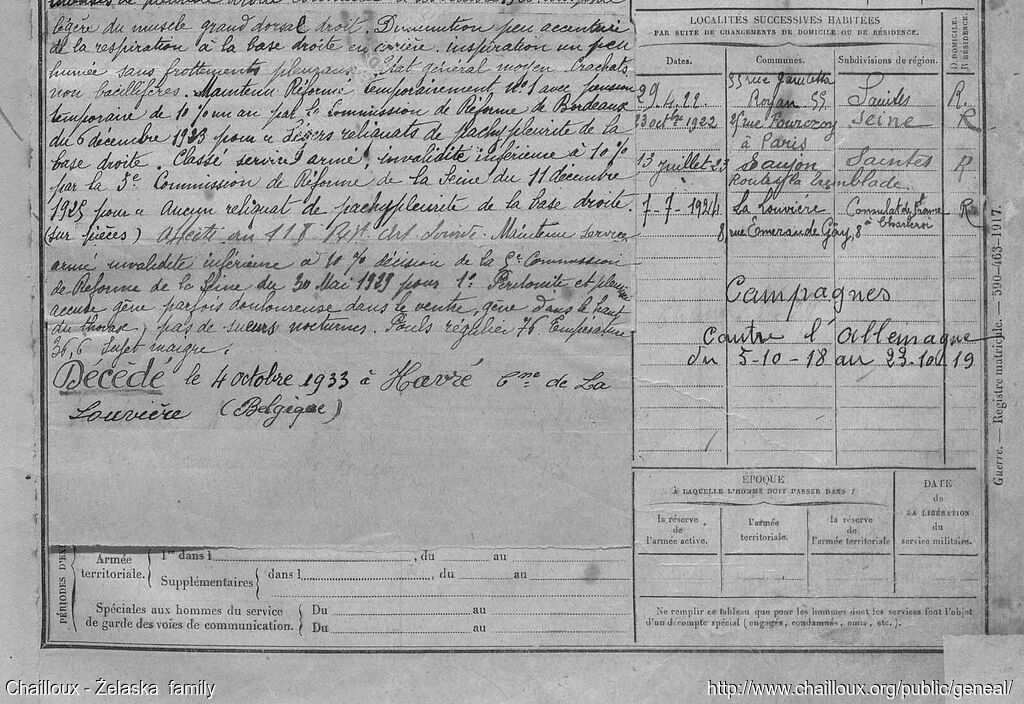 légère du muscle grand dorsal droit. Diminution peu accentuée
de la respiration à la base droite en arrière. inspiration un peu
humée sans frottements pleuraux. Etat général moyen Crachats
non bacillifères. Maintenu Réforme temporairement N°1 avec pension
temporaire de 10% un an par la Commission de Réforme de Bordeaux
du 6 décembre 1923 pour « Légers reliquats de pachypleurite de la
base droite. Classé service armé invalidité inférieure à 10%
par la 3e Commission de Réforme de la Seine du 11 décembre
1925 pour « Aucun reliquat de pachypleurite de la base droite
(sur pièces) Affecté au 118 Rgt. Art Lourde. Maintenu service
armé invalidité inférieure à 10% décision de la Commission
de Réforme de la Seine du 30 Mai 1929 pour 1° Péritonite et
accuse gêne parfois douloureuse dans le ventre, gêne dans le haut
du thorax, pas de sueurs nocturnes. Pouls régulier 76 Température
36,6 Sujet maigre.
Décédé le 4 octobre 1933 à Havré Cne de La
Louvière (Belgique)
LOCALITÉS SUCCESSIVES HABITÉES
PAR SUITE DE CHANGEMENTS DE DOMICILE OU DE RÉSIDENCE.
D DOMICILE.
R RÉSIDENCE.
Dates. Communes. Subdivisions de région.
55 rue Gambetta
29.4.22 Royan 55 Saintes R.
23 octbre 1922 25 rue Seine R
à Paris
13 juillet 23 Saujon Saintes R
Route la Tremblade
1-7-1924 La Louvière Consulat de France R
8, rue à Charleroi
Campagnes
contre l'Allemagne
du 5-10-18 au 23-10-19
Guerre. — Registre matricule. — 590-463-1917.
ÉPOQUE
À LAQUELLE L'HOMME DOIT PASSER DANS :
DATE
de
LA LIBÉRATION
du
service militaire.
la réserve
de
l'armée active.
l'armée
territoriale.
la réserve
de
l'armée territoriale
Ne remplir ce tableau que pour les hommes dont les services font l'objet
d'un décompte spécial (engagés, condamnés, omis, etc.).
PÉRIODES D'EX
Armée
territoriale.
1re dans l , du au
Supplémentaires dans l , du au
Spéciales aux hommes du service
de garde des voies de communication.
Du au
Du au
Chailloux - Żelaska family
http://www.chailloux.org/public/geneal/